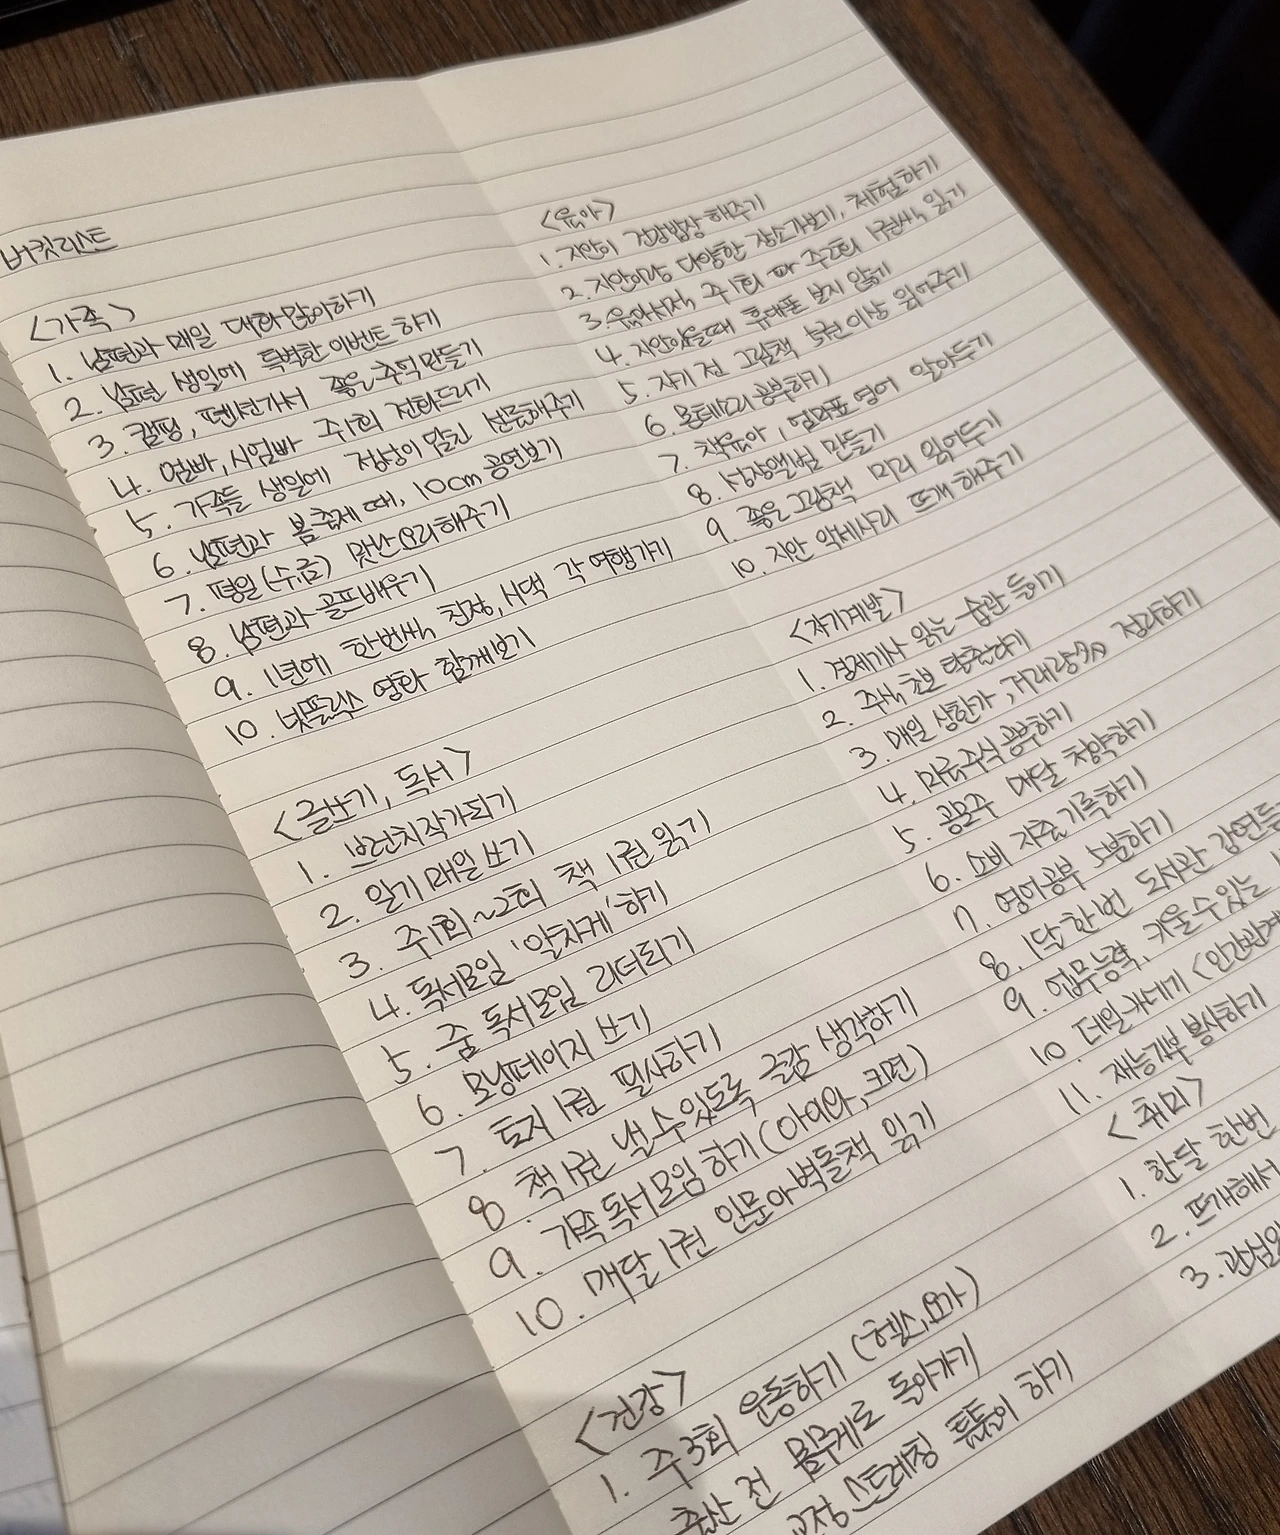 버킷리스트
<가족>
1. 남편과 매일 대화많이하기
2. 남편 생일에 특별한 이벤트 하기
3. 캠핑, 펜션가서 좋은추억만들기
4. 엄빠, 시엄빠 주1회 전화드리기
5. 가족들 생일에 정성이 담긴 선물해주기
6. 남편과 봄축제 때, 10cm 공연보기
7. 평일(수,금) 맛난요리해주기
8. 남편과 골프배우기
9. 1년에 한번씩 친정, 시댁 각 여행가기
10. 넷플릭스 영화 함께보기
<글쓰기, 독서>
1. 브런치작가되기
2. 일기 매일 쓰기
3. 주1회~2회 책 1권 읽기
4. 독서모임 '알차게' 하기
5. 줌 독서모임 리더되기
6. 모닝페이지 쓰기
7. 토지 1권 필사하기
8. 책 1권 낼 수 있도록 글감 생각하기
9. 가족독서모임 하기 (아이와, 키면)
10. 매달 1권 인문아벽돌책 읽기
<건강>
1. 주3회 운동하기 (헬스,요가)
출산 전 몸무게로 돌아가기
교정 스트레칭 틈틈이 하기
<육아>
1. 지안이 건강밥상 해주기
2. 지안이랑 다양한 장소가보기, 체험하기
3. 육아서적 주1회 or 주2회 1권씩 읽기
4. 지안있을때 휴대폰 보지 않기
5. 자기 전 그림책 5권이상 읽어주기
6. 몬테소리 공부하기
7. 책육아, 엄마표 영어 알아두기
8. 성장앨범 만들기
9. 좋은 그림책 미리 읽어두기
10. 지안 악세사리 뜨개 해주기
<자기계발>
1. 경제기사 읽는 습관 들이기
2. 주식 초보 탈출하기
3. 매일 상한가, 거래량 정리하기
4. 미국주식 공부하기
5. 공모주 매달 청약하기
6. 소비 지출 기록하기
7. 영어공부 5분하기
8. 1달 한번 도서관 강연듣
9. 업무능력, 키울수있는
10. 데일카네기 <인간관계
11. 재능기부 봉사하기
<취미>
1. 한달 한번
2. 뜨개해서
3. 관심